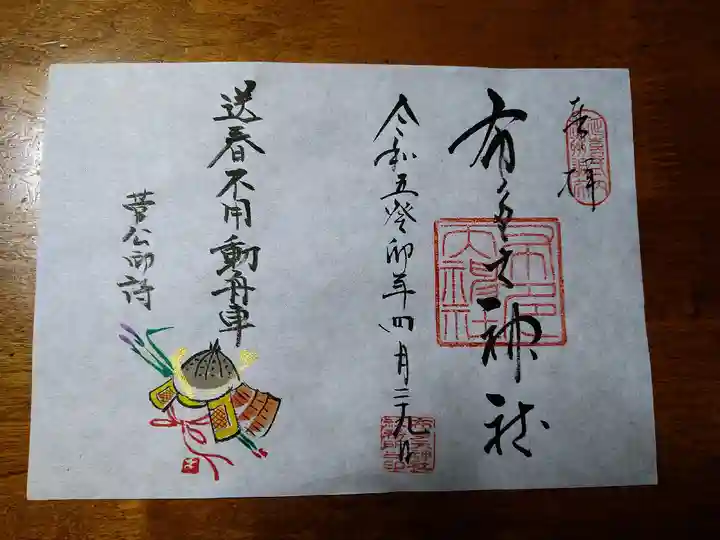 奉拝
布多天神社
令和五癸卯年四月二十九日
送春不用動舟車
菅公御詩